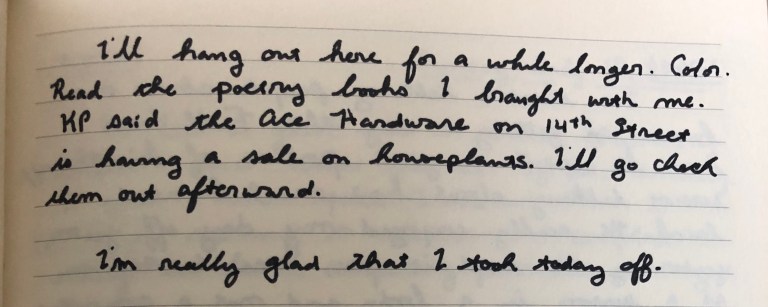 I'll hang out here for a while longer. Color.
Read the poetry books I brought with me.
KP said the Ace Hardware on 14th Street
is having a sale on houseplants. I'll go check
them out afterward.
I'm really glad that I took today off.